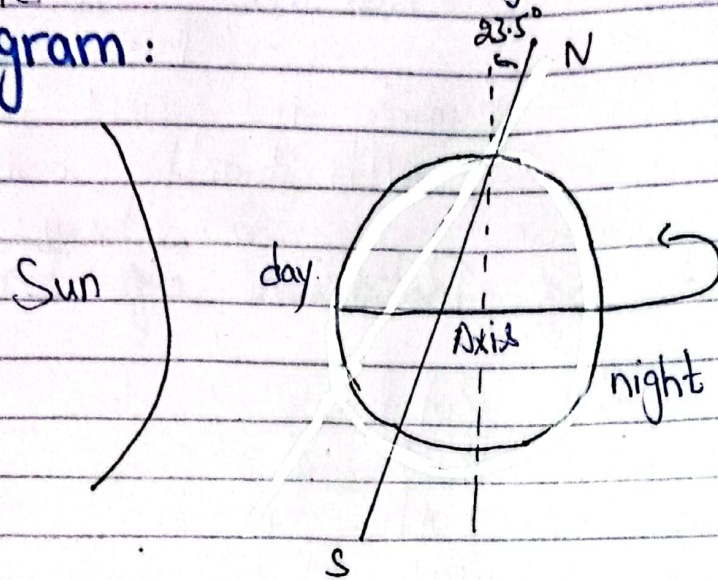 gram :
23.5°
N
Sun
day.
Axis
night
S